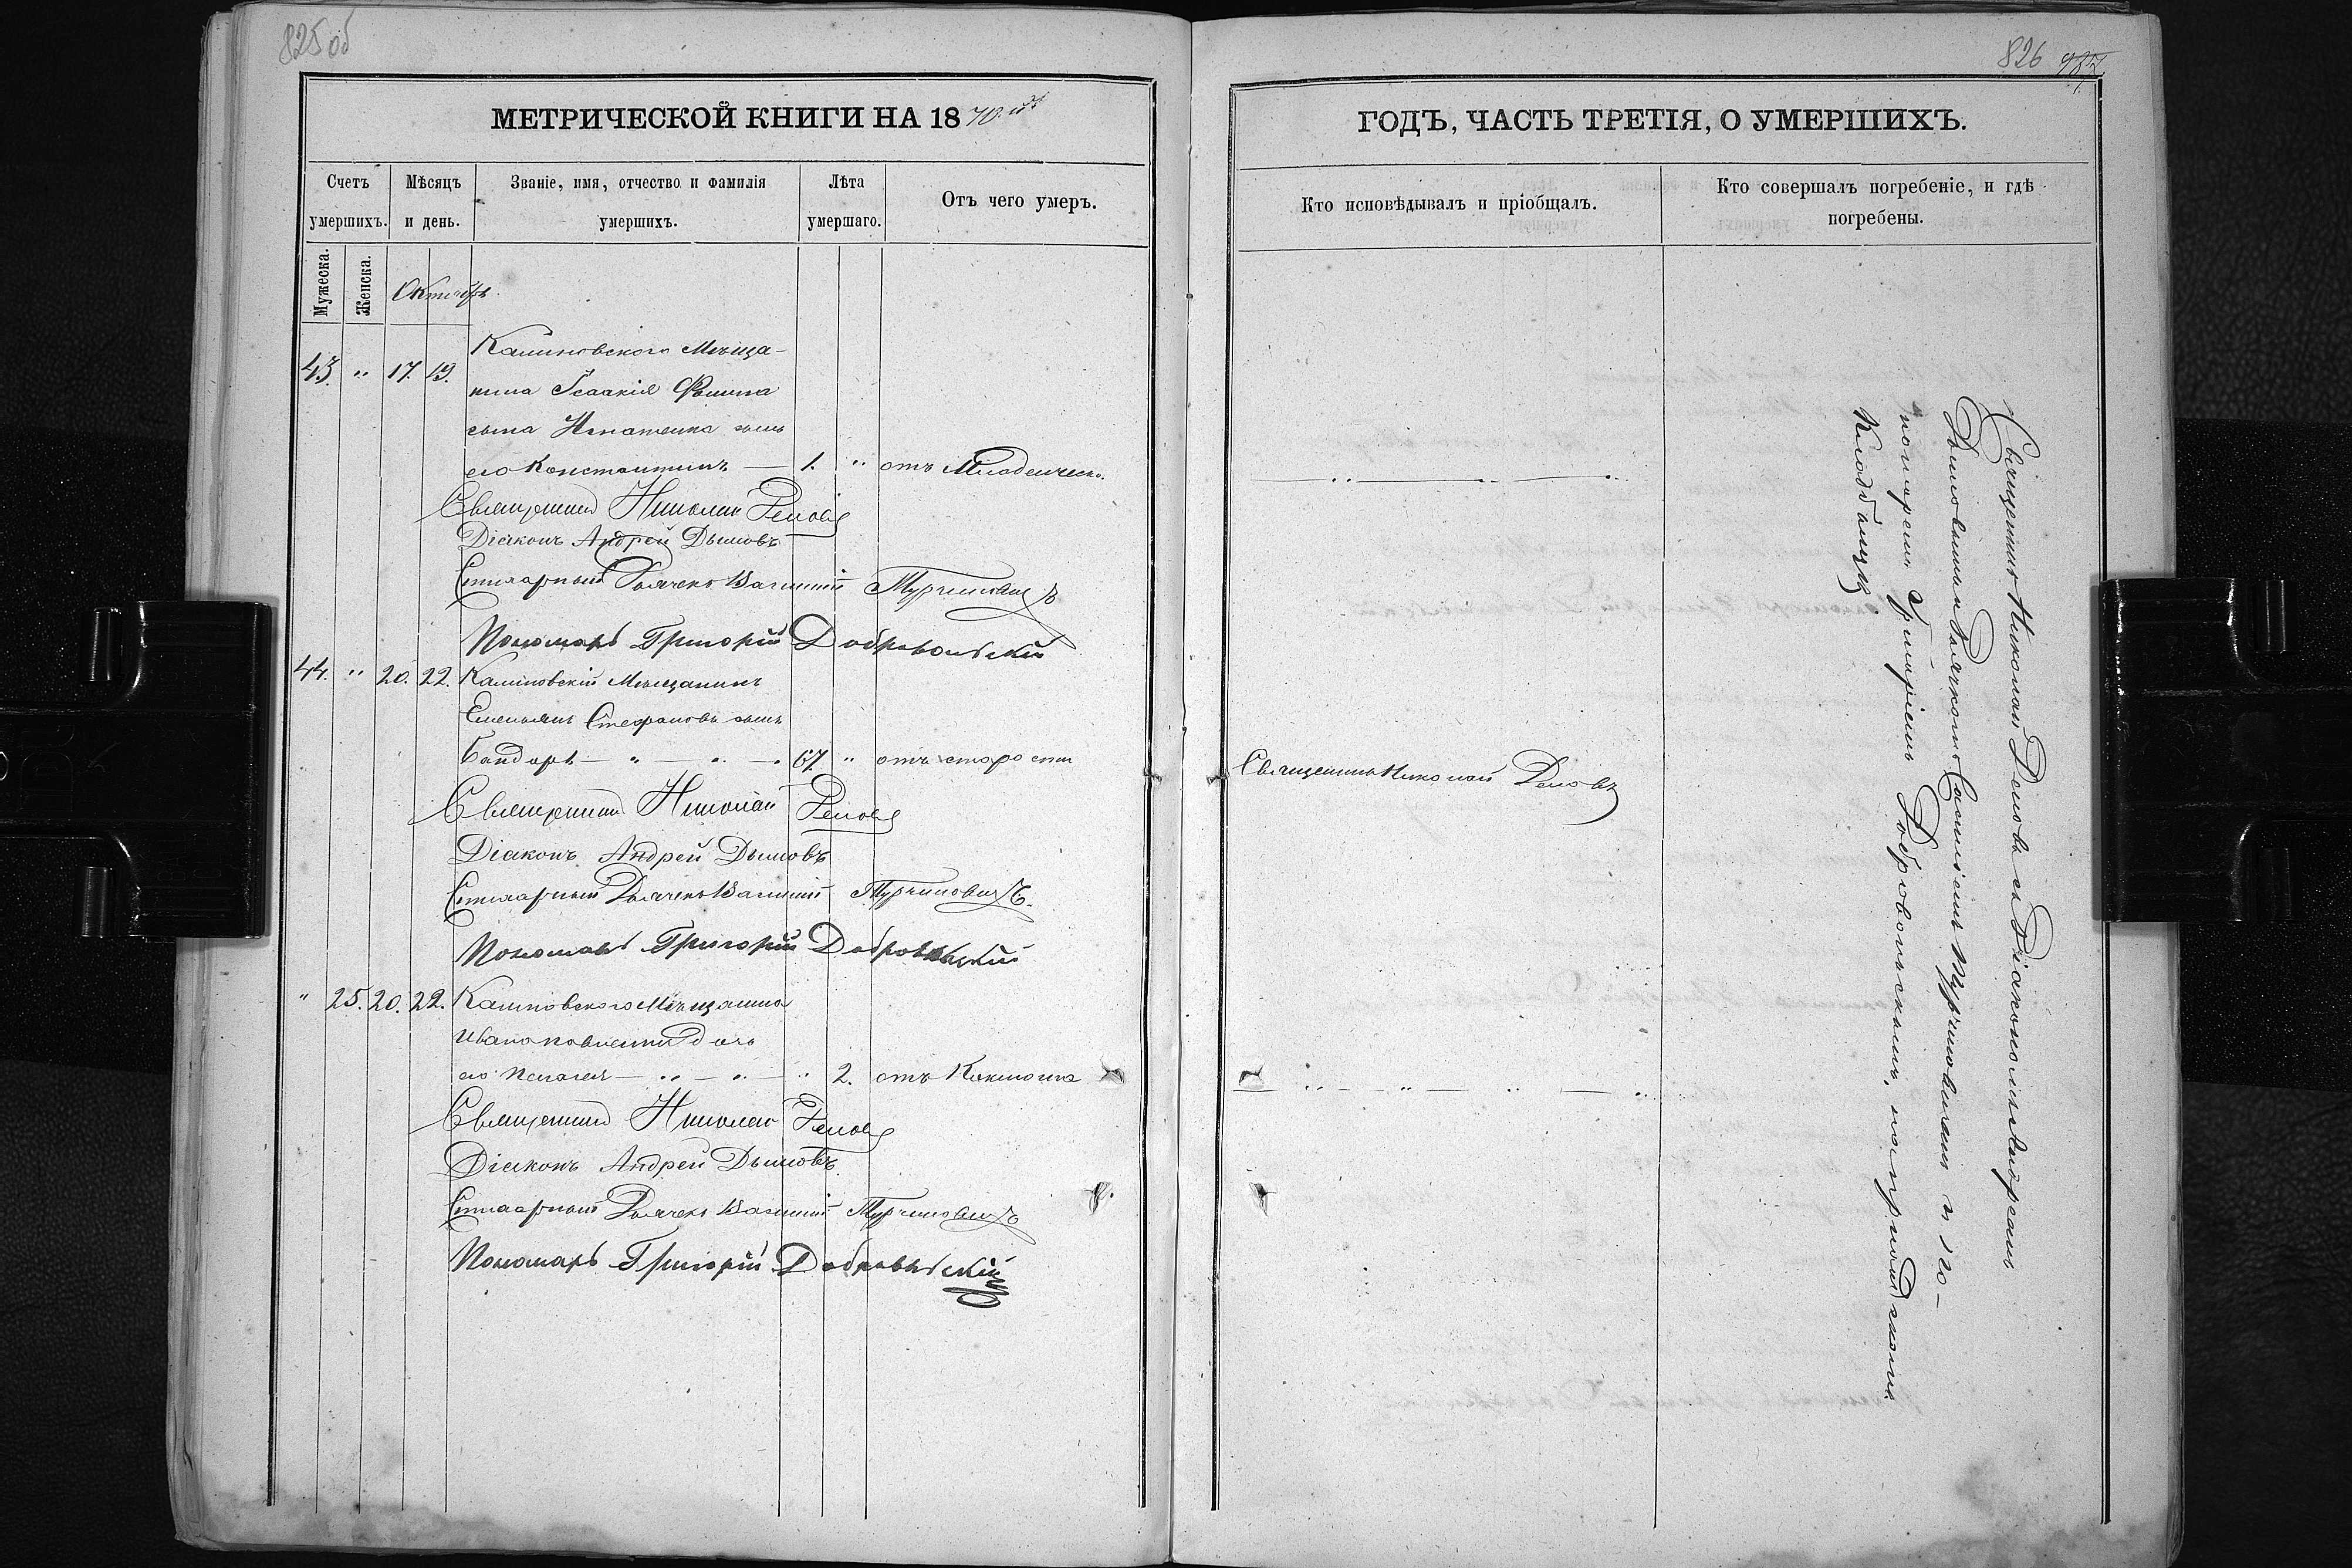 825 об
МЕТРИЧЕСКОЙ КНИГИ НА 1870й
Счетъ умершихъ.
Мѣсяцъ и день.
Званіе, имя, отчество и фамилія умершихъ.
Лѣта умершаго.
Отъ чего умеръ.
Мужеска.
Женска.
Октябрь.
Калиновского Мѣща-
43. " 17. 19.
нина Ісаакія Ѳомина
сына Игнатенка сынъ
его Константинъ — 1. " отъ Младенческо.
Священникъ Николай
Діаконъ Андрей Дымовъ
Стихарный Дьячекъ Василій Турчиновичъ
Пономарь Григорій Добровольскій
44. " 20. 22. Калиновскій Мѣщанинъ
Емельянъ Стефановъ сынъ
Бандарь — " — " — 67. " отъ старости
Священникъ Николай
Діаконъ Андрей Дымовъ
Стихарный Дьячекъ Василій Турчиновичъ.
Пономарь Григорій Добровольскій
" 25. 20. 22. Калиновского Мѣщанина
Ивана дочь
его Пелагея — " — " — " 2. отъ Коклюша
Священникъ Николай
Діаконъ Андрей Дымовъ.
Стихарный Дьячекъ Василій Турчиновичъ
Пономарь Григорій Добровольскій
826 987
ГОДЪ, ЧАСТЬ ТРЕТІЯ, О УМЕРШИХЪ.
Кто исповѣдывалъ и пріобщалъ.
Кто совершалъ погребеніе, и гдѣ погребены.
Священникъ Николай
Священникъ Николай съ Діакономъ Андреемъ
Дымовымъ и Дьячкомъ Василіемъ Турчиновичемъ и по-
номаремъ Григоріемъ Добровольскимъ, на приходскомъ
Кладбищѣ